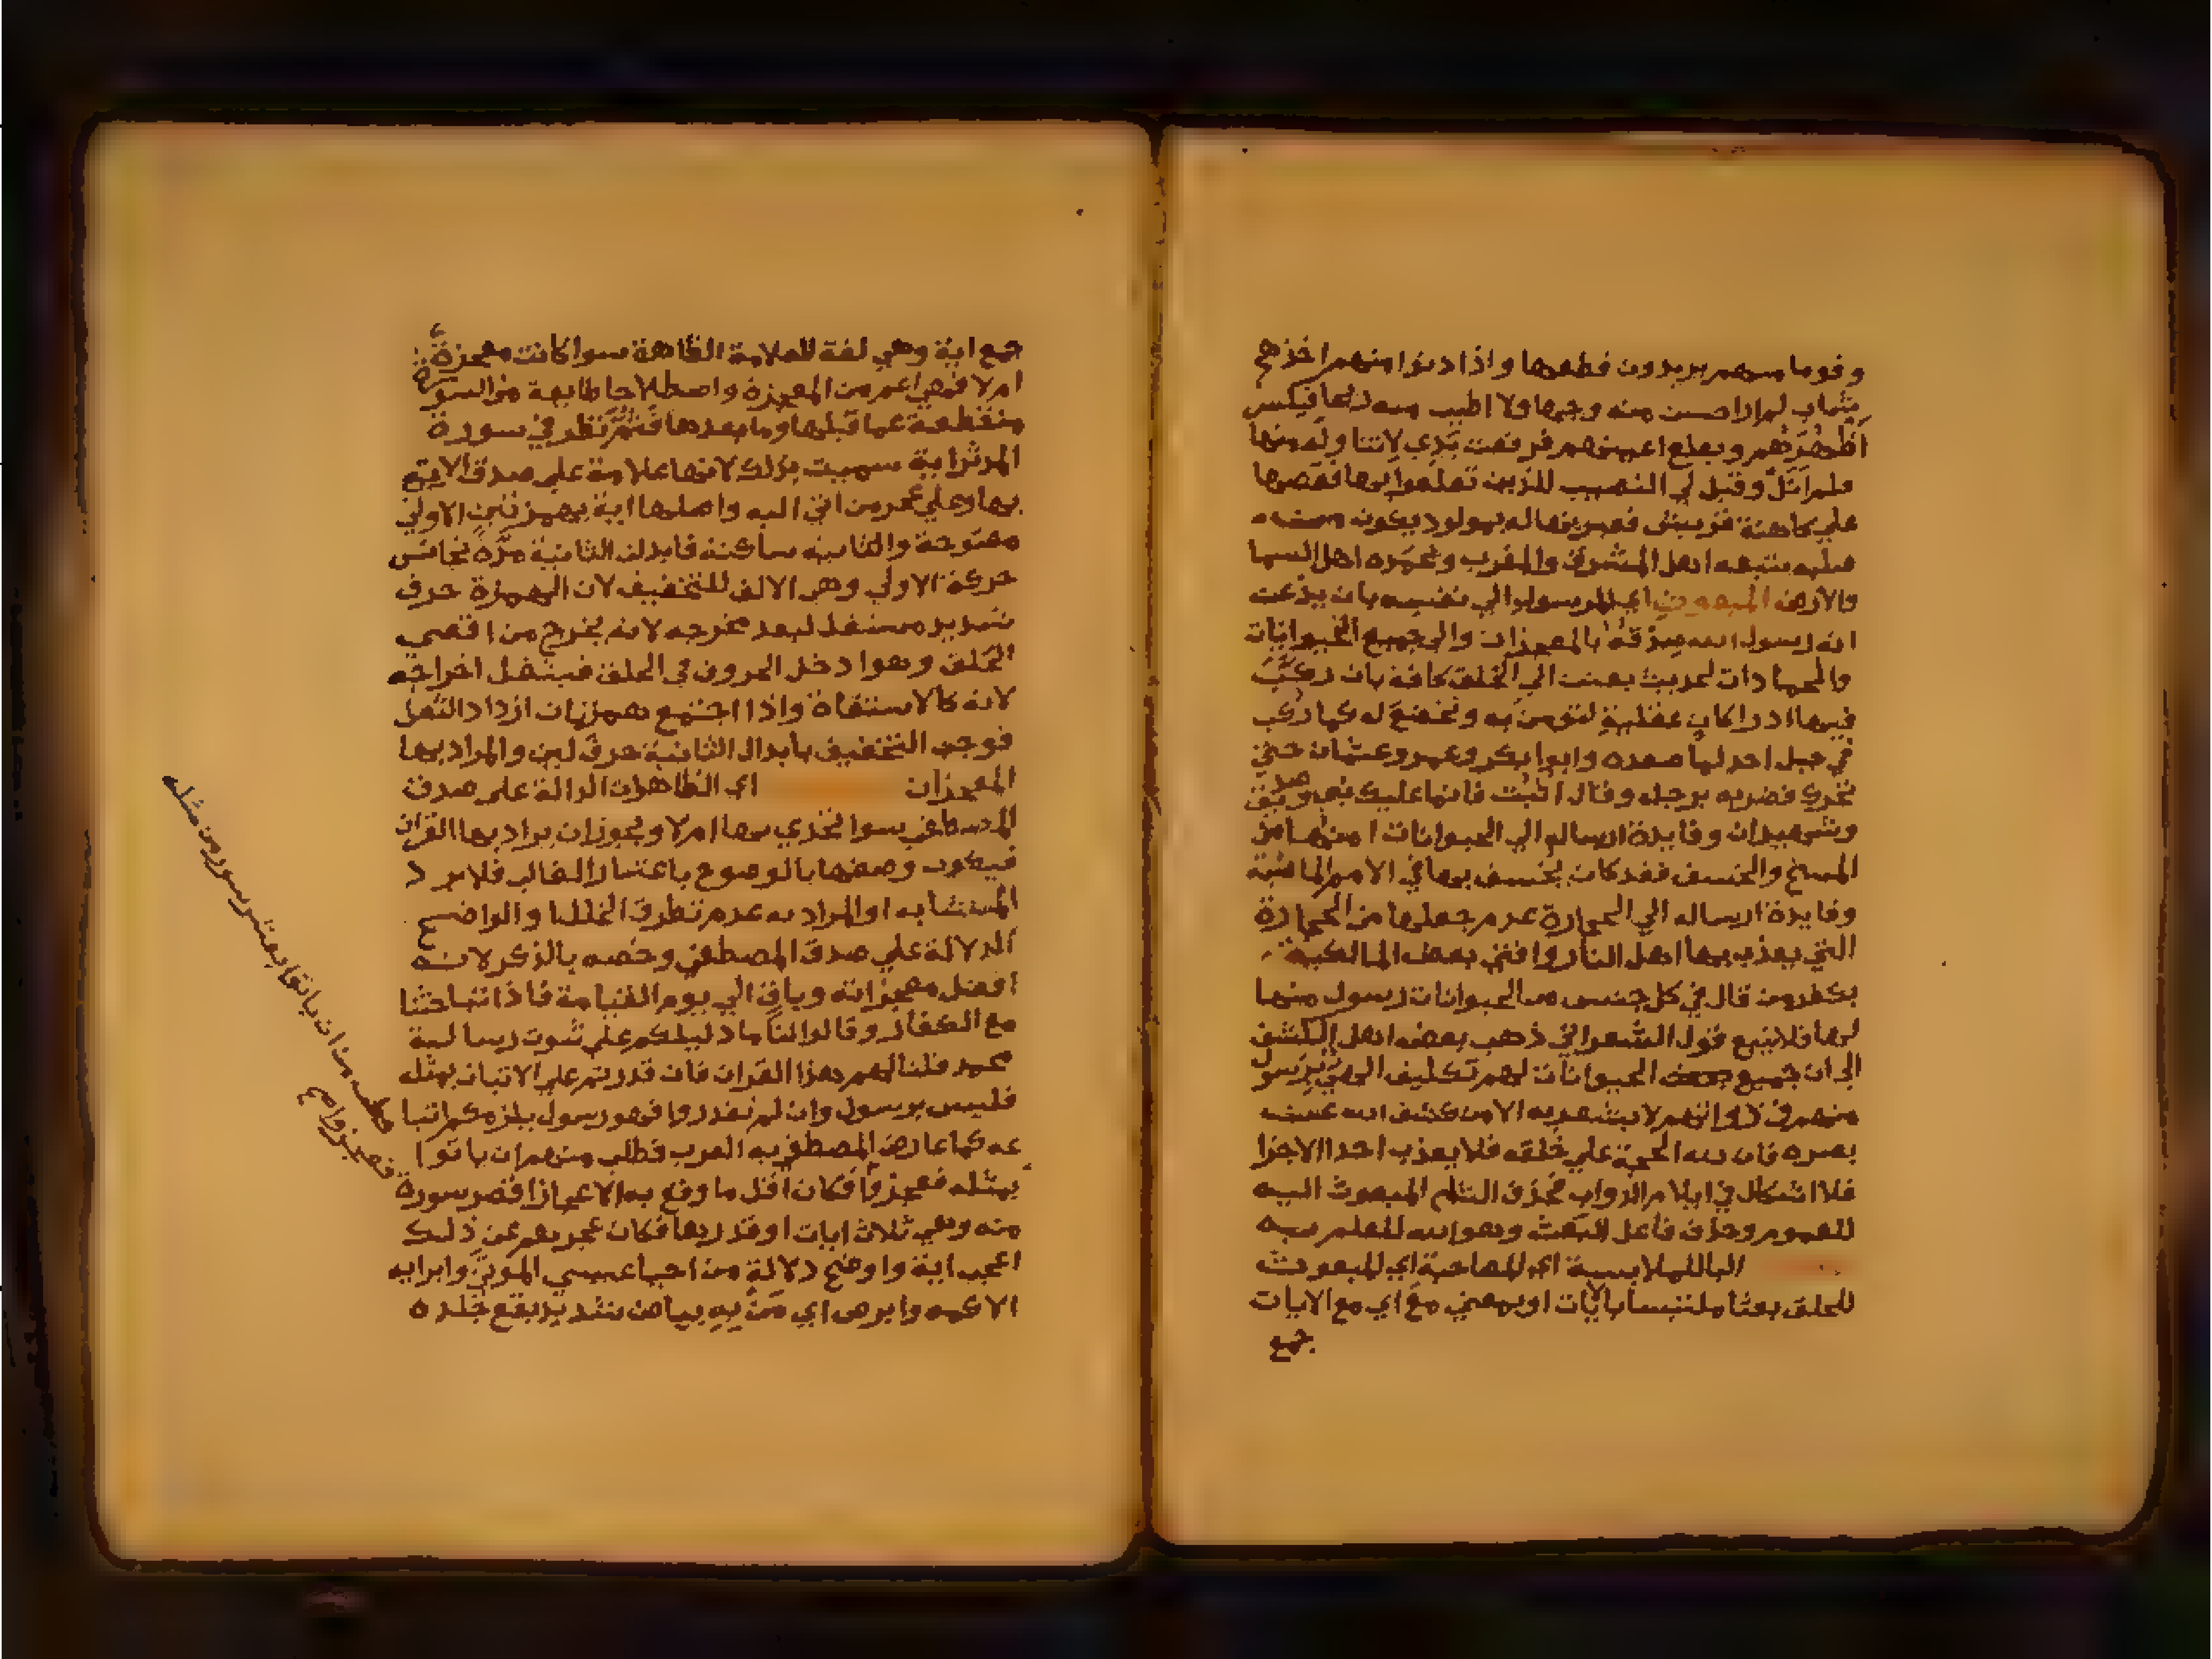 وقوما منهم يريدون قطعها واذا دنوا منهم اخذهم
شاب لم ار احسن منه وجها ولا اطيب منه ريحا فيكسر
اظهرهم ويقلع اعينهم فرفعت يدي لاتناول منها
فلم انل وقيل لي النصيب للذين تعلقوا بها فقصها
علي كاهنة قريش فعبرتها له بمولود يكون من
صلبه يتبعه اهل المشرق والمغرب ويحمده اهل السما
والارض المبعوث اي المرسول الي نفسه بان يذعن
انه رسول الله صدقه بالمعجزات والي جميع الحيوانات
والجمادات لحديث بعثت الي الخلق كافة بان ركب
فيها ادراكات عقلية لتؤمن به وتخضع له كما ركب
في جبل احد لما صعده وابوا بكر وعمر وعثمان حتي
تحرك فضربه برجله وقال اثبت فانما عليك نبي وصديق
وشهيدان وفايدة ارساله الي الحيوانات امنها من
المسخ والخسف فقد كان يخسف بها في الامم الماضية
وفايدة ارساله الي الحجارة عدم جعلها من الحجارة
التي يعذب بها اهل النار وافتي بعض المالكية
بكفر من قال في كل جنس من الحيوانات رسول منها
لها فلا يتبع قول الشعراني ذهب بعض اهل الكشف
الي ان جميع الحيوانات لهم تكليف الهي برسول
منهم في ذواتهم لا يشعر به الا من كشف الله عن
بصره فان لله الحجة علي خلقه فلا يعذب احدا الا جزا
فلا اشكال في ايلام الدواب فحذف الناظم المبعوث اليه
للعموم وحذف فاعل البعث وهو الله للعلم به
البا للملابسة اي المصاحبة اي المبعوث
للخلق بعثا ملتبسا بالايات او بمعني مع اي مع الايات
جمع
جمع اية وهي لغة للعلامة الظاهرة سوا كانت معجزة
ام لا فهي اعم من المعجزة واصطلاحا طايفة من السورة
منقطعة عما قبلها وما بعدها فثم نظر في سورة
المدثر اية سميت بذلك لانها علامة علي صدق الاتي
بها وعلي عجز من اتي اليه واصلها ااية بهمزتين الاولي
مفتوحة والثانية ساكنة فابدلت الثانية مدة تجانس
حركة الاولي وهي الالف للتخفيف لان الهمزة حرف
شديد مستفل لبعد مخرجه لانه يخرج من اقصي
الحلق وهو ادخل الحروف في الحلق فيثقل اخراجه
لانه كالاستقاة واذا اجتمع همزتان ازداد الثقل
فوجب التخفيف بابدال الثانية حرف لين والمراد بها
المعجزات اي الظاهرات الدالة علي صدق
المصطفي سوا تحدي بها ام لا ويجوز ان يراد بها القران
فيكون وصفها بالوضوح باعتبار الغالب فلا يرد
المتشابه او المراد به عدم تطرق الخلل او الواضح
الدلالة علي صدق المصطفي وخصه بالذكر لانه
افضل معجزاته وباق الي يوم القيامة فاذا تباحثنا
مع الكفار وقالوا لنا ما دليلكم علي ثبوت رسالة
محمد قلنا لهم هذا القران فان قدرتم علي الاتيان بمثله
فليس برسول وان لم تقدروا فهو رسول يلزمكم اتبا
عه كما عارض المصطفي به العرب فطلب منهم ان ياتوا
بمثله فعجزوا فكان اقل ما وقع به الاعجاز اقصر سورة
منه وهي ثلاث ايات او قدرها فكان عجزهم عن ذلك
اعجب اية واوضح دلالة من احيا عيسي الموتي وابرايه
الاكمه وابرص اي من به بياض شديد يبقع جلده
فطلب منه ان ياتوا بعشر سور من مثله
فعجزوا صح